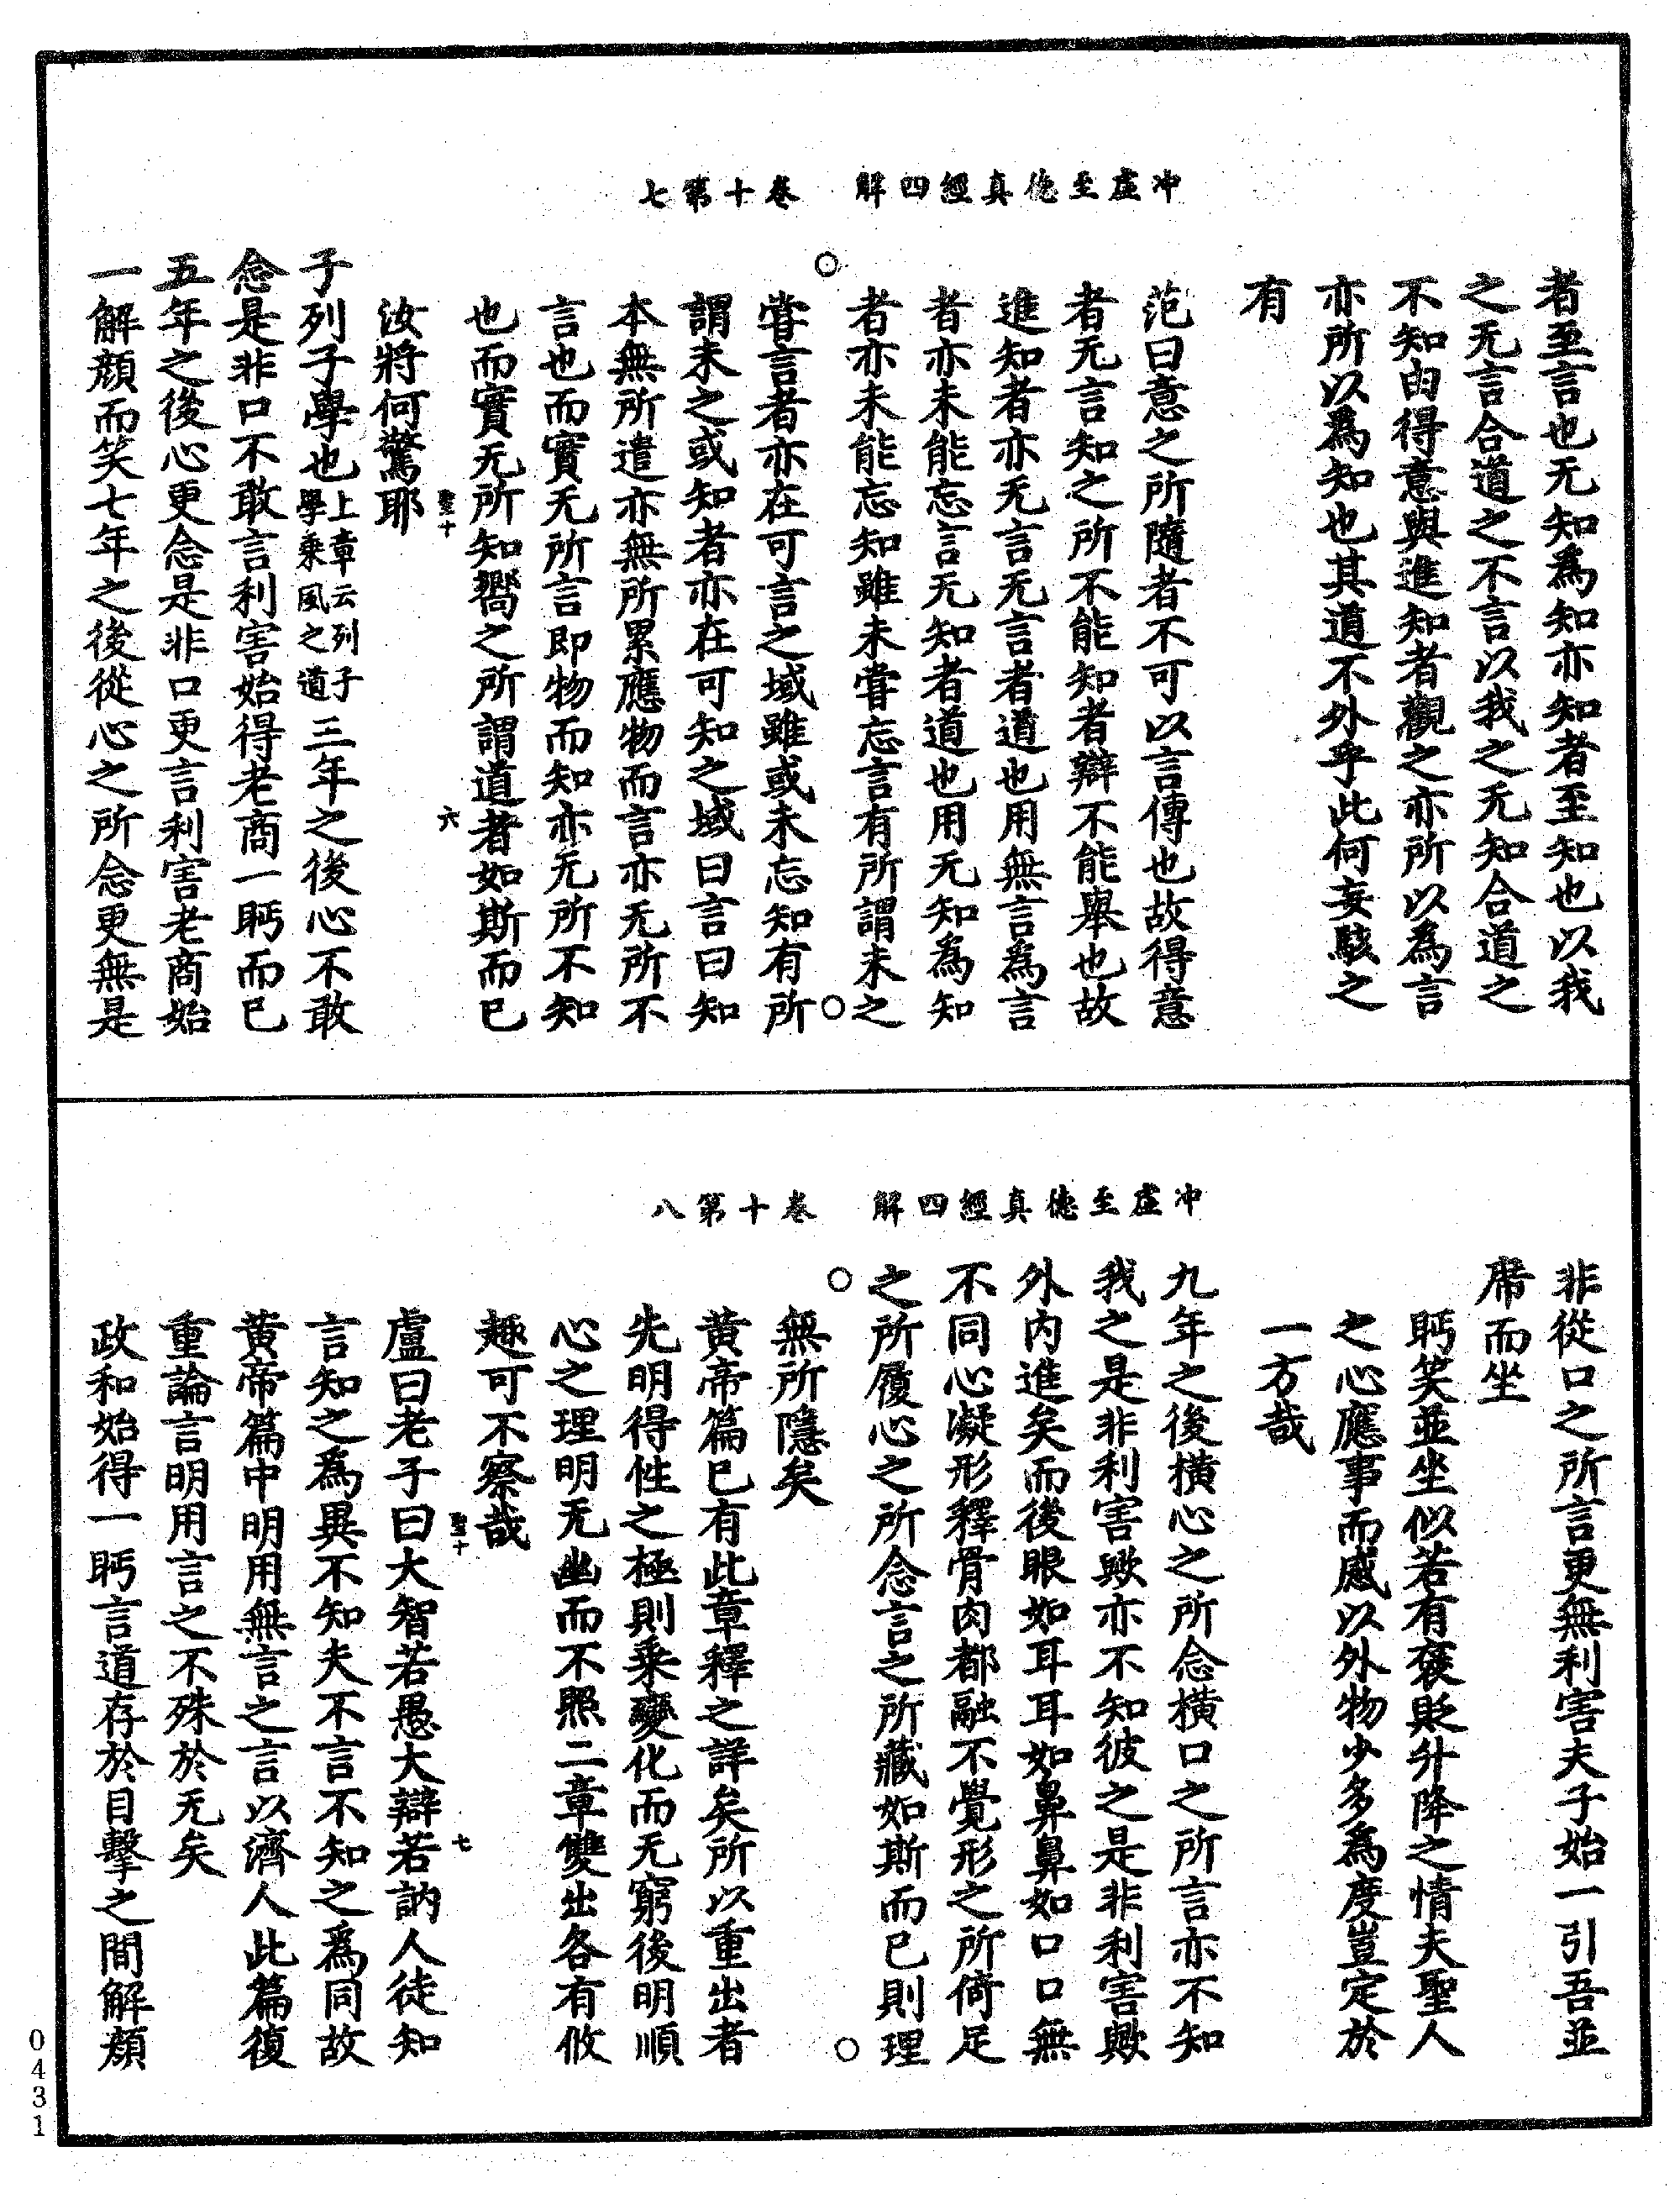 冲虛至德真經四解　卷十第七
者至言也无知爲知亦知者至知也以我
之无言合道之不言以我之无知合道之
不知由得意與進知者觀之亦所以為言
亦所以爲知也其道不外乎此何妄駭之
有
范曰意之所隨者不可以言傳也故得意
者无言知之所不能知者辯不能舉也故
進知者亦无言无言者道也用無言為言
者亦未能忘言无知者道也用无知為知
者亦未能忘知雖未嘗忘言有所謂未之
嘗言者亦在可言之域雖或未忘知有所
謂未之或知者亦在可知之域曰言曰知
本無所遣亦無所累應物而言亦无所不
言也而實无所言即物而知亦无所不知
也而實无所知嚮之所謂道者如斯而已
聖十　六
汝將何驚耶
子列子學也上章云列子學乘風之道三年之後心不敢
念是非口不敢言利害始得老商一眄而已
五年之後心更念是非口更言利害老商始
一解顏而笑七年之後從心之所念更無是
冲虛至德真經四解　卷十第八
非從口之所言更無利害夫子始一引吾並
席而坐
眄笑並坐似若有褒貶升降之情夫聖人
之心應事而感以外物少多為度豈定於
一方哉
九年之後橫心之所念橫口之所言亦不知
我之是非利害歟亦不知彼之是非利害歟
外內進矣而後眼如耳耳如鼻鼻如口口無
不同心凝形釋骨肉都融不覺形之所倚足
之所履心之所念言之所藏如斯而已則理
無所隱矣
黃帝篇已有此章釋之詳矣所以重出者
先明得性之極則乘變化而无窮後明順
心之理明无幽而不照二章雙出各有攸
趣可不察哉
聖十　七
盧曰老子曰大智若愚大辯若訥人徒知
言知之爲異不知夫不言不知之爲同故
黃帝篇中明用無言之言以濟人此篇復
重論言明用言之不殊於无矣
政和始得一眄言道存於目擊之間解顏
0431